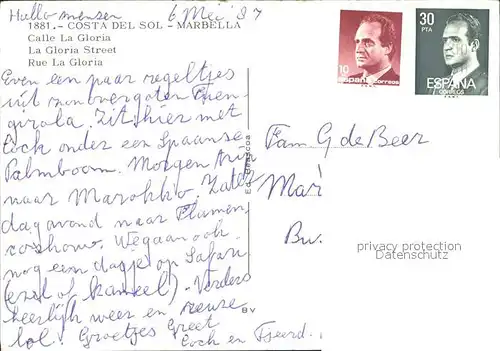 Hullo mensen 6 Mei '87
1881.- COSTA DEL SOL - MARBELLA
Calle La Gloria
La Gloria Street
Rue La Gloria
Even een paar regeltjes
uit zonovergoten Fuen-
girola. Zit hier met
Cock onder een Spaanse
Palmboom. Morgen
naar Marokko. Zater-
dagavond naar Flamen-
coshow. We gaan ook
nog een dagje op Safari
(ezel of kameel). Verders
heerlijk weer en reuze
lol. Groetjes Greet
Cock en Tjeerd.
10
ESPAÑA CORREOS
30
PTA
ESPAÑA
CORREOS
Fam. G de Beer
Mari
Bu.
privacy protection
Datenschutz
BV